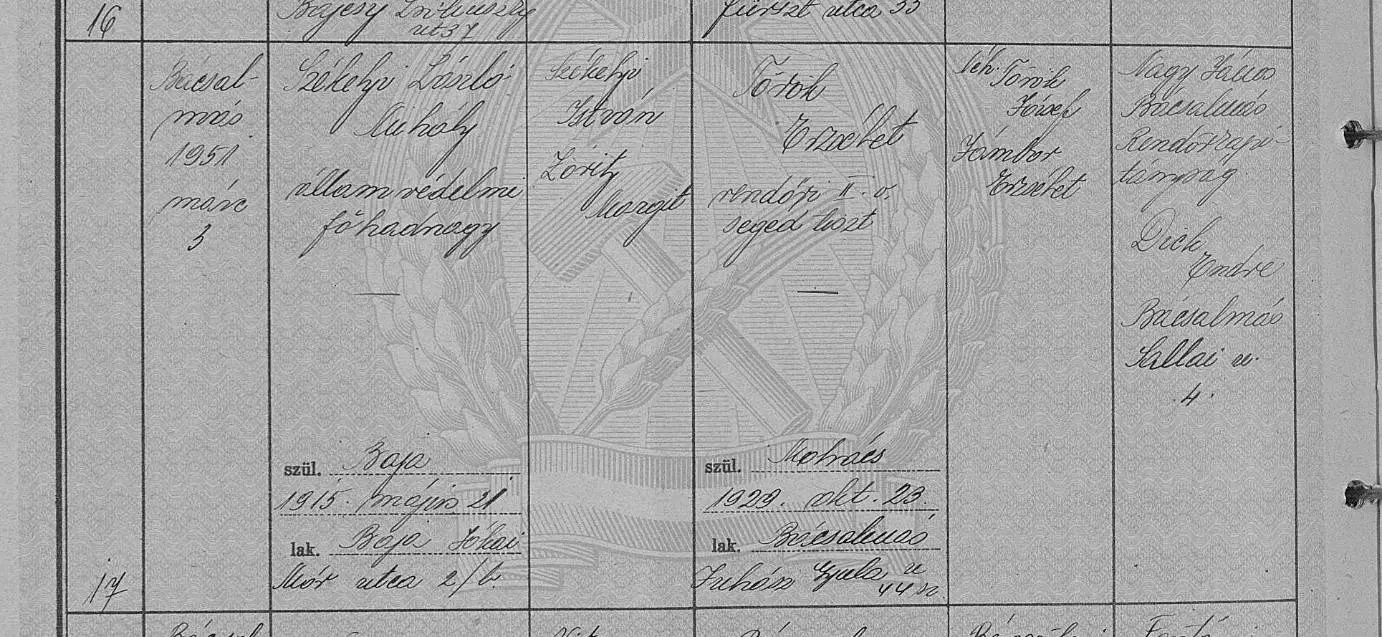 16
Bajcsy Zsilinszky
út 37
fürszt utca 33
Bácsal-
más
1951
márc
3
Székelyi László
Mihály
államvédelmi
főhadnagy
Székelyi
István
Zórity
Margit
Török
Erzsébet
rendőri II. o.
segéd tiszt
Török
József
Jámbor
Erzsébet
Nagy János
Bácsalmás
Rendőrkapi-
tányság
Dick
Endre
Bácsalmás
Sallai u.
4.
szül. Baja
1915. május 21
lak. Baja Jókai
Mór utca 2/b.
szül. Mohács
1929. okt. 23.
lak. Bácsalmás
Juhász Gyula u
44 sz.
17